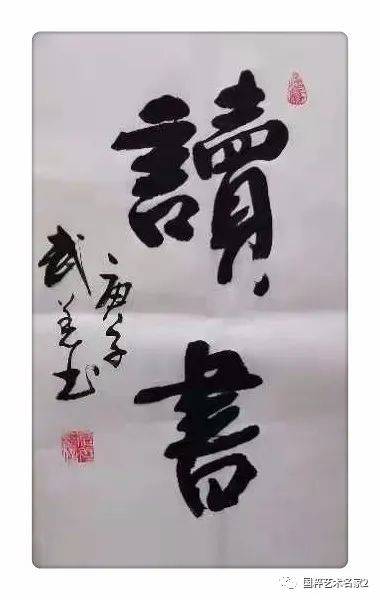 讀書
庚子
武书
国粹艺术名家2